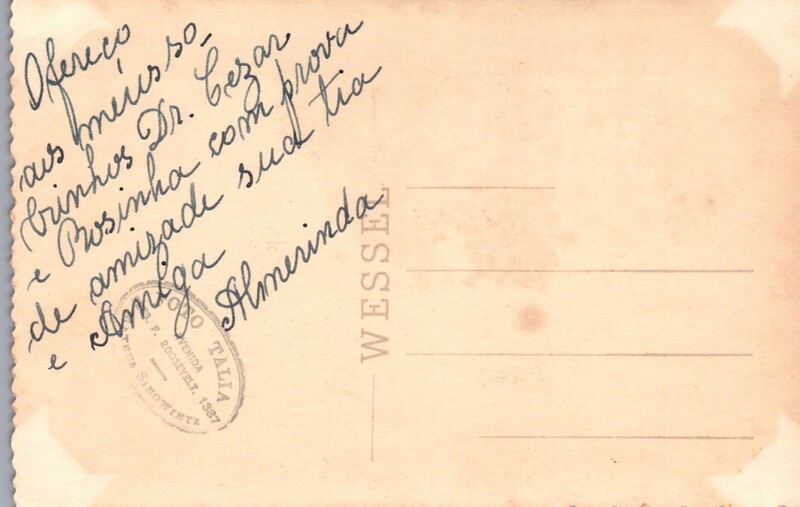 Ofereço
aos meus so-
brinhos Dr. Cezar
e Rosinha com prova
de amizade sua tia
e Amiga
Almerinda
WESSEL
FOTO TALIA
AVENIDA
F. ROOSEVELT, 1337